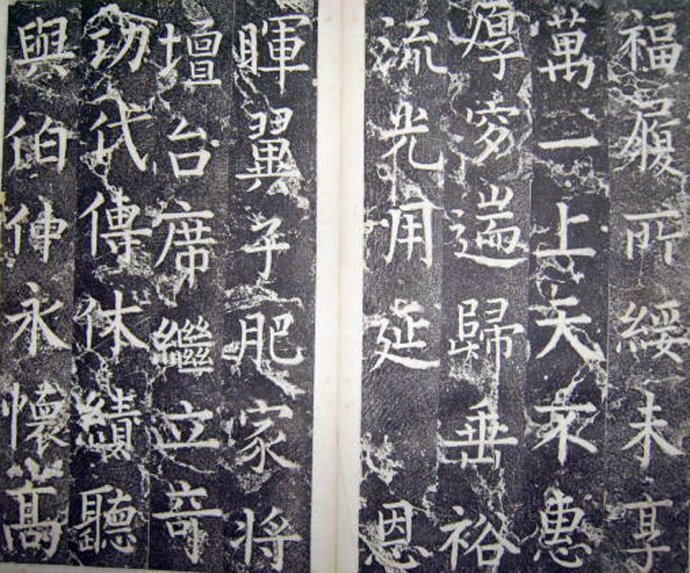 福履所綏未享
萬一上天不惠
厚穸遄歸垂裕
流光用延恩
暉翼子肥家将
壇台席繼立奇
功代傳休績聽
與伯仲永懷髙